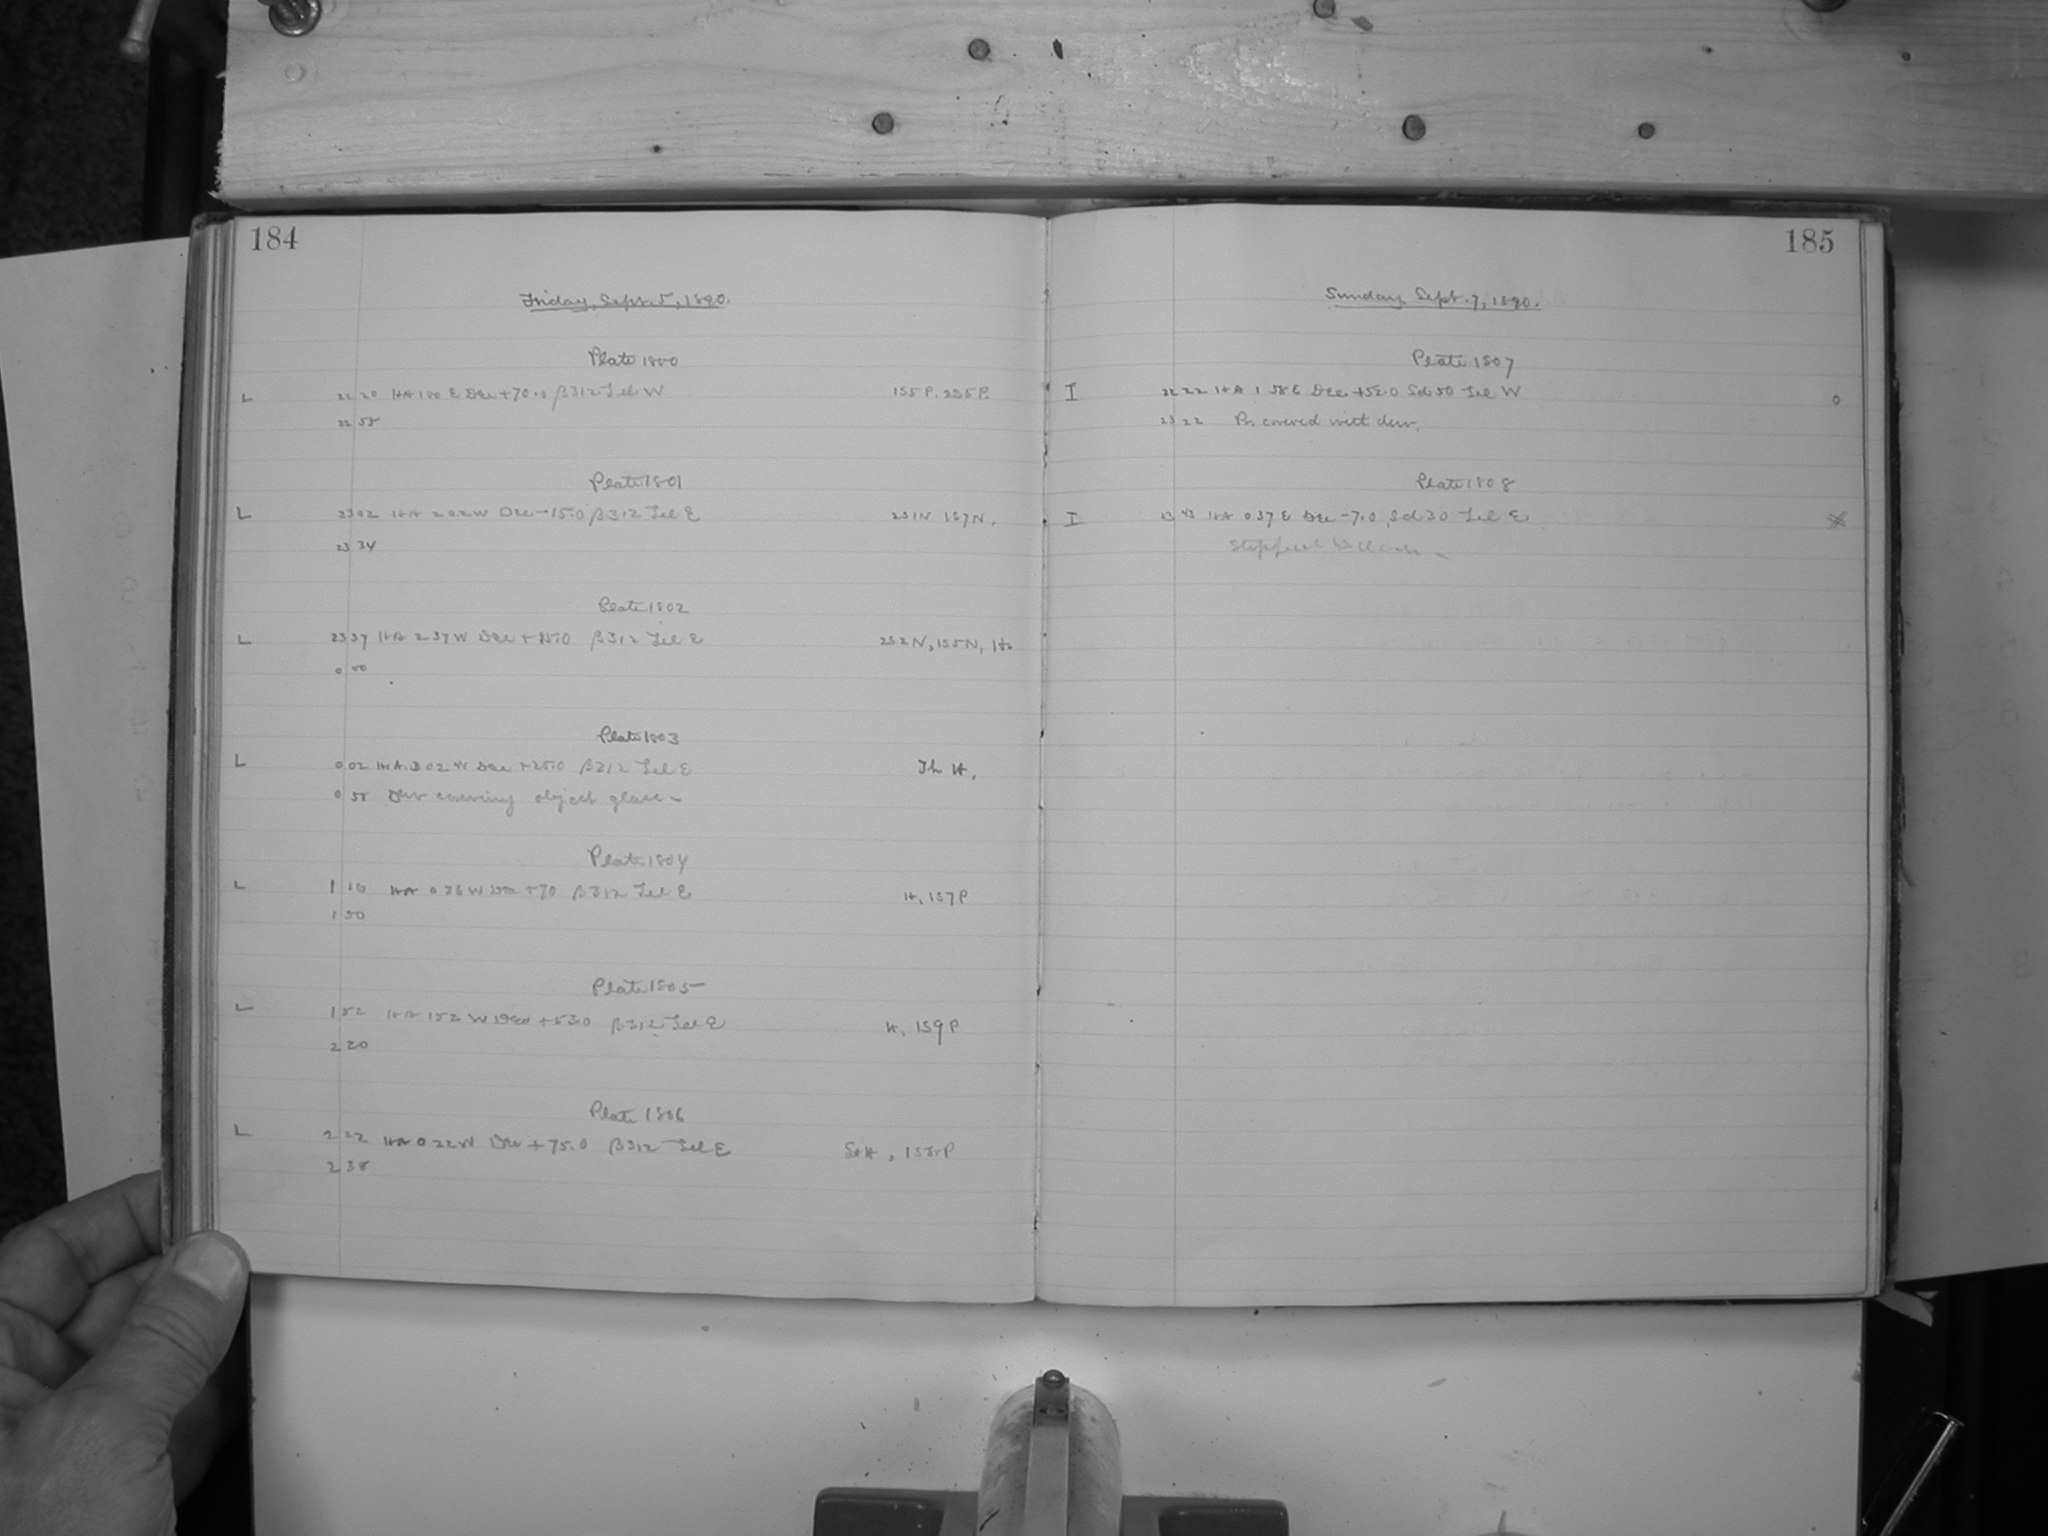 184
Friday, Sept. 5, 1890.
Plate 1800
L 22 20 HA 1 00 E Dec +70.0 β312 Tel W 1S5P. 2S5P.
22 55
Plate 1801
L 23 02 HA 2 02 W Dec -15.0 β312 Tel E 2S1N 1S7N.
23 34
Plate 1802
L 23 37 HA 2 37 W Dec + 15.0 β312 Tel E 2S2N, 1S5N, H.
0 00
Plate 1803
L 0 02 HA 3 02 W Dec +25.0 β312 Tel E Th H.
0 55 Dew covering object glass
Plate 1804
L 1 10 HA 0 36 W Dec +70 β312 Tel E H. 1S7P
1 50
Plate 1805
L 1 52 HA 1 52 W Dec +53.0 β312 Tel E H. 1S9P
2 20
Plate 1806
L 2 22 HA 0 22 W Dec +75.0 β312 Tel E StH, 1S5P
2 38
185
Sunday Sept. 7, 1890.
Plate 1807
I 22 22 HA 1 58 E Dec +52.0 Sd 50 Tel W 0
23 22 Pr. covered with dew.
Plate 1808
I 23 43 HA 0 37 E Dec -7.0 Sd 30 Tel E
Stopped